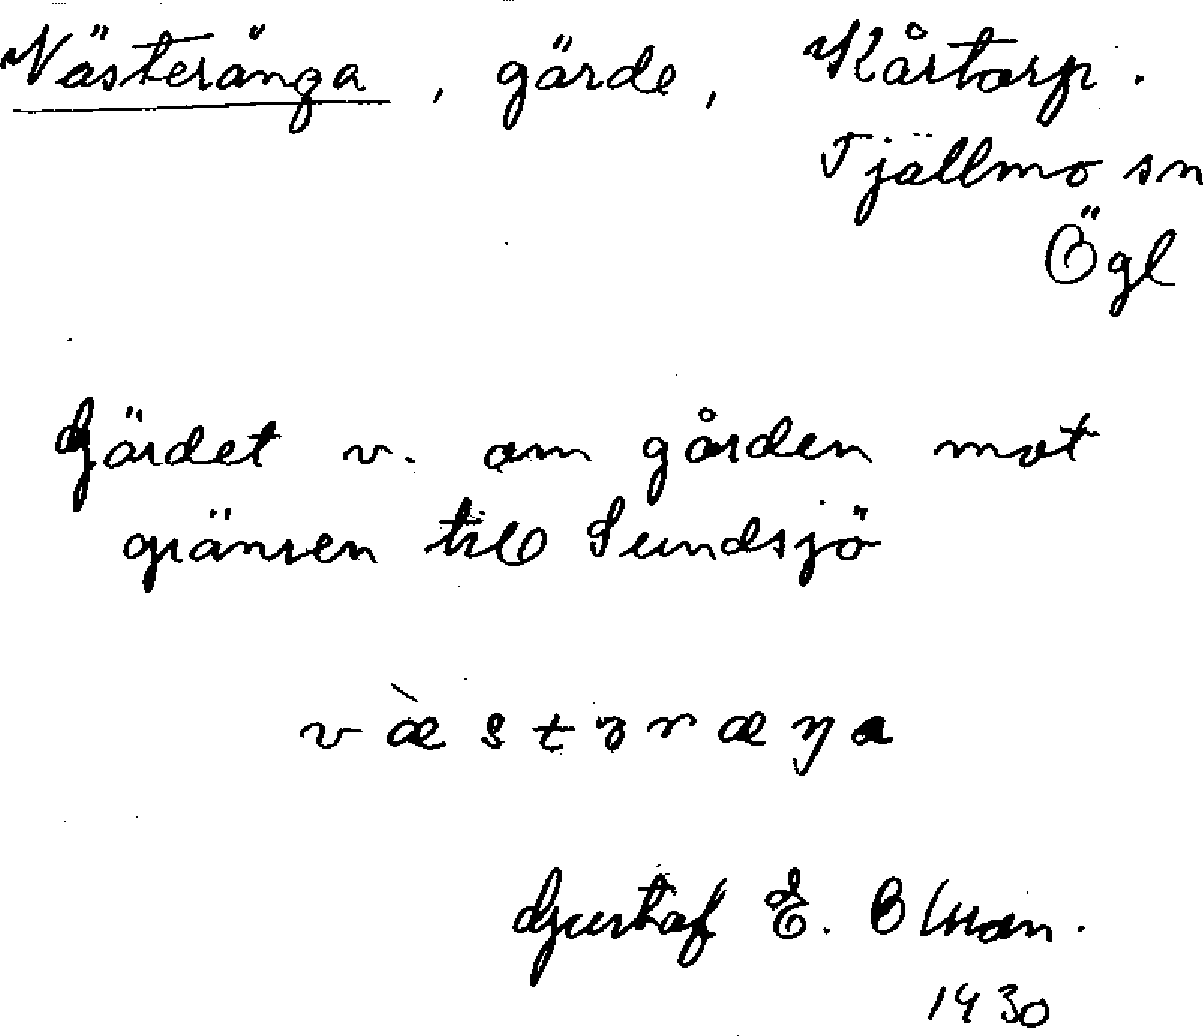 Västeränga, gärde, Kårtorp.
Tjällmo sn
Ögl
Gärdet v. om gården mot
gränsen till Sundsjö
v ὰ s t ɜ r æ ŋ a
Gustaf E. Olsson.
1930